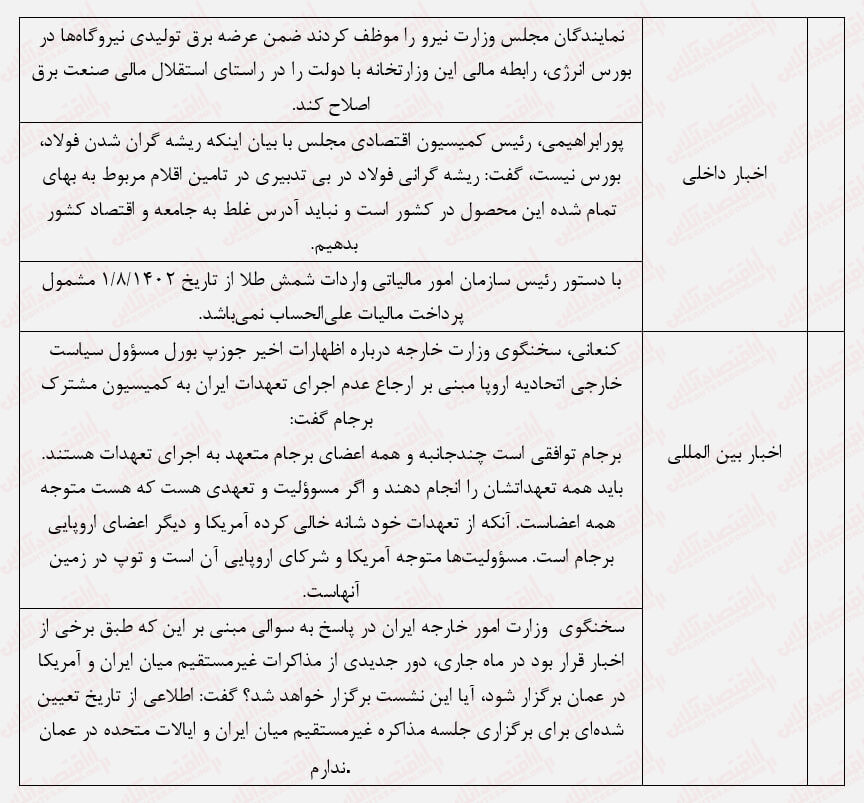 اخبار داخلی
نمایندگان مجلس وزارت نیرو را موظف کردند ضمن عرضه برق تولیدی نیروگاه‌ها در
بورس انرژی، رابطه مالی این وزارتخانه با دولت را در راستای استقلال مالی صنعت برق
اصلاح کند.
پورابراهیمی، رئیس کمیسیون اقتصادی مجلس با بیان اینکه ریشه گران شدن فولاد،
بورس نیست، گفت: ریشه گرانی فولاد در بی تدبیری در تامین اقلام مربوط به بهای
تمام شده این محصول در کشور است و نباید آدرس غلط به جامعه و اقتصاد کشور
بدهیم.
با دستور رئیس سازمان امور مالیاتی واردات شمش طلا از تاریخ ۱/۸/۱۴۰۲ مشمول
پرداخت مالیات علی‌الحساب نمی‌باشد.
اخبار بین المللی
کنعانی، سخنگوی وزارت خارجه درباره اظهارات اخیر جوزپ بورل مسؤول سیاست
خارجی اتحادیه اروپا مبنی بر ارجاع عدم اجرای تعهدات ایران به کمیسیون مشترک
برجام گفت:
برجام توافقی است چندجانبه و همه اعضای برجام متعهد به اجرای تعهدات هستند.
باید همه تعهداتشان را انجام دهند و اگر مسوؤلیت و تعهدی هست که هست متوجه
همه اعضاست. آنکه از تعهدات خود شانه خالی کرده آمریکا و دیگر اعضای اروپایی
برجام است. مسؤولیت‌ها متوجه آمریکا و شرکای اروپایی آن است و توپ در زمین
آنهاست.
سخنگوی وزارت امور خارجه ایران در پاسخ به سوالی مبنی بر این که طبق برخی از
اخبار قرار بود در ماه جاری، دور جدیدی از مذاکرات غیرمستقیم میان ایران و آمریکا
در عمان برگزار شود، آیا این نشست برگزار خواهد شد؟ گفت: اطلاعی از تاریخ تعیین
شده‌ای برای برگزاری جلسه مذاکره غیرمستقیم میان ایران و ایالات متحده در عمان
.ندارم